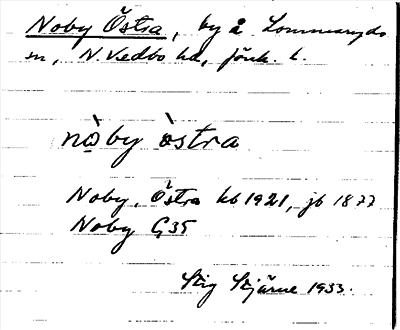 Noby Östra, by i Lommaryds
sn, N. Vedbo hd, Jönk. l.
nò̤by òstra
Noby, Östra kb 1921, jb 1877
Noby G35
Stig Stjärne 1933.